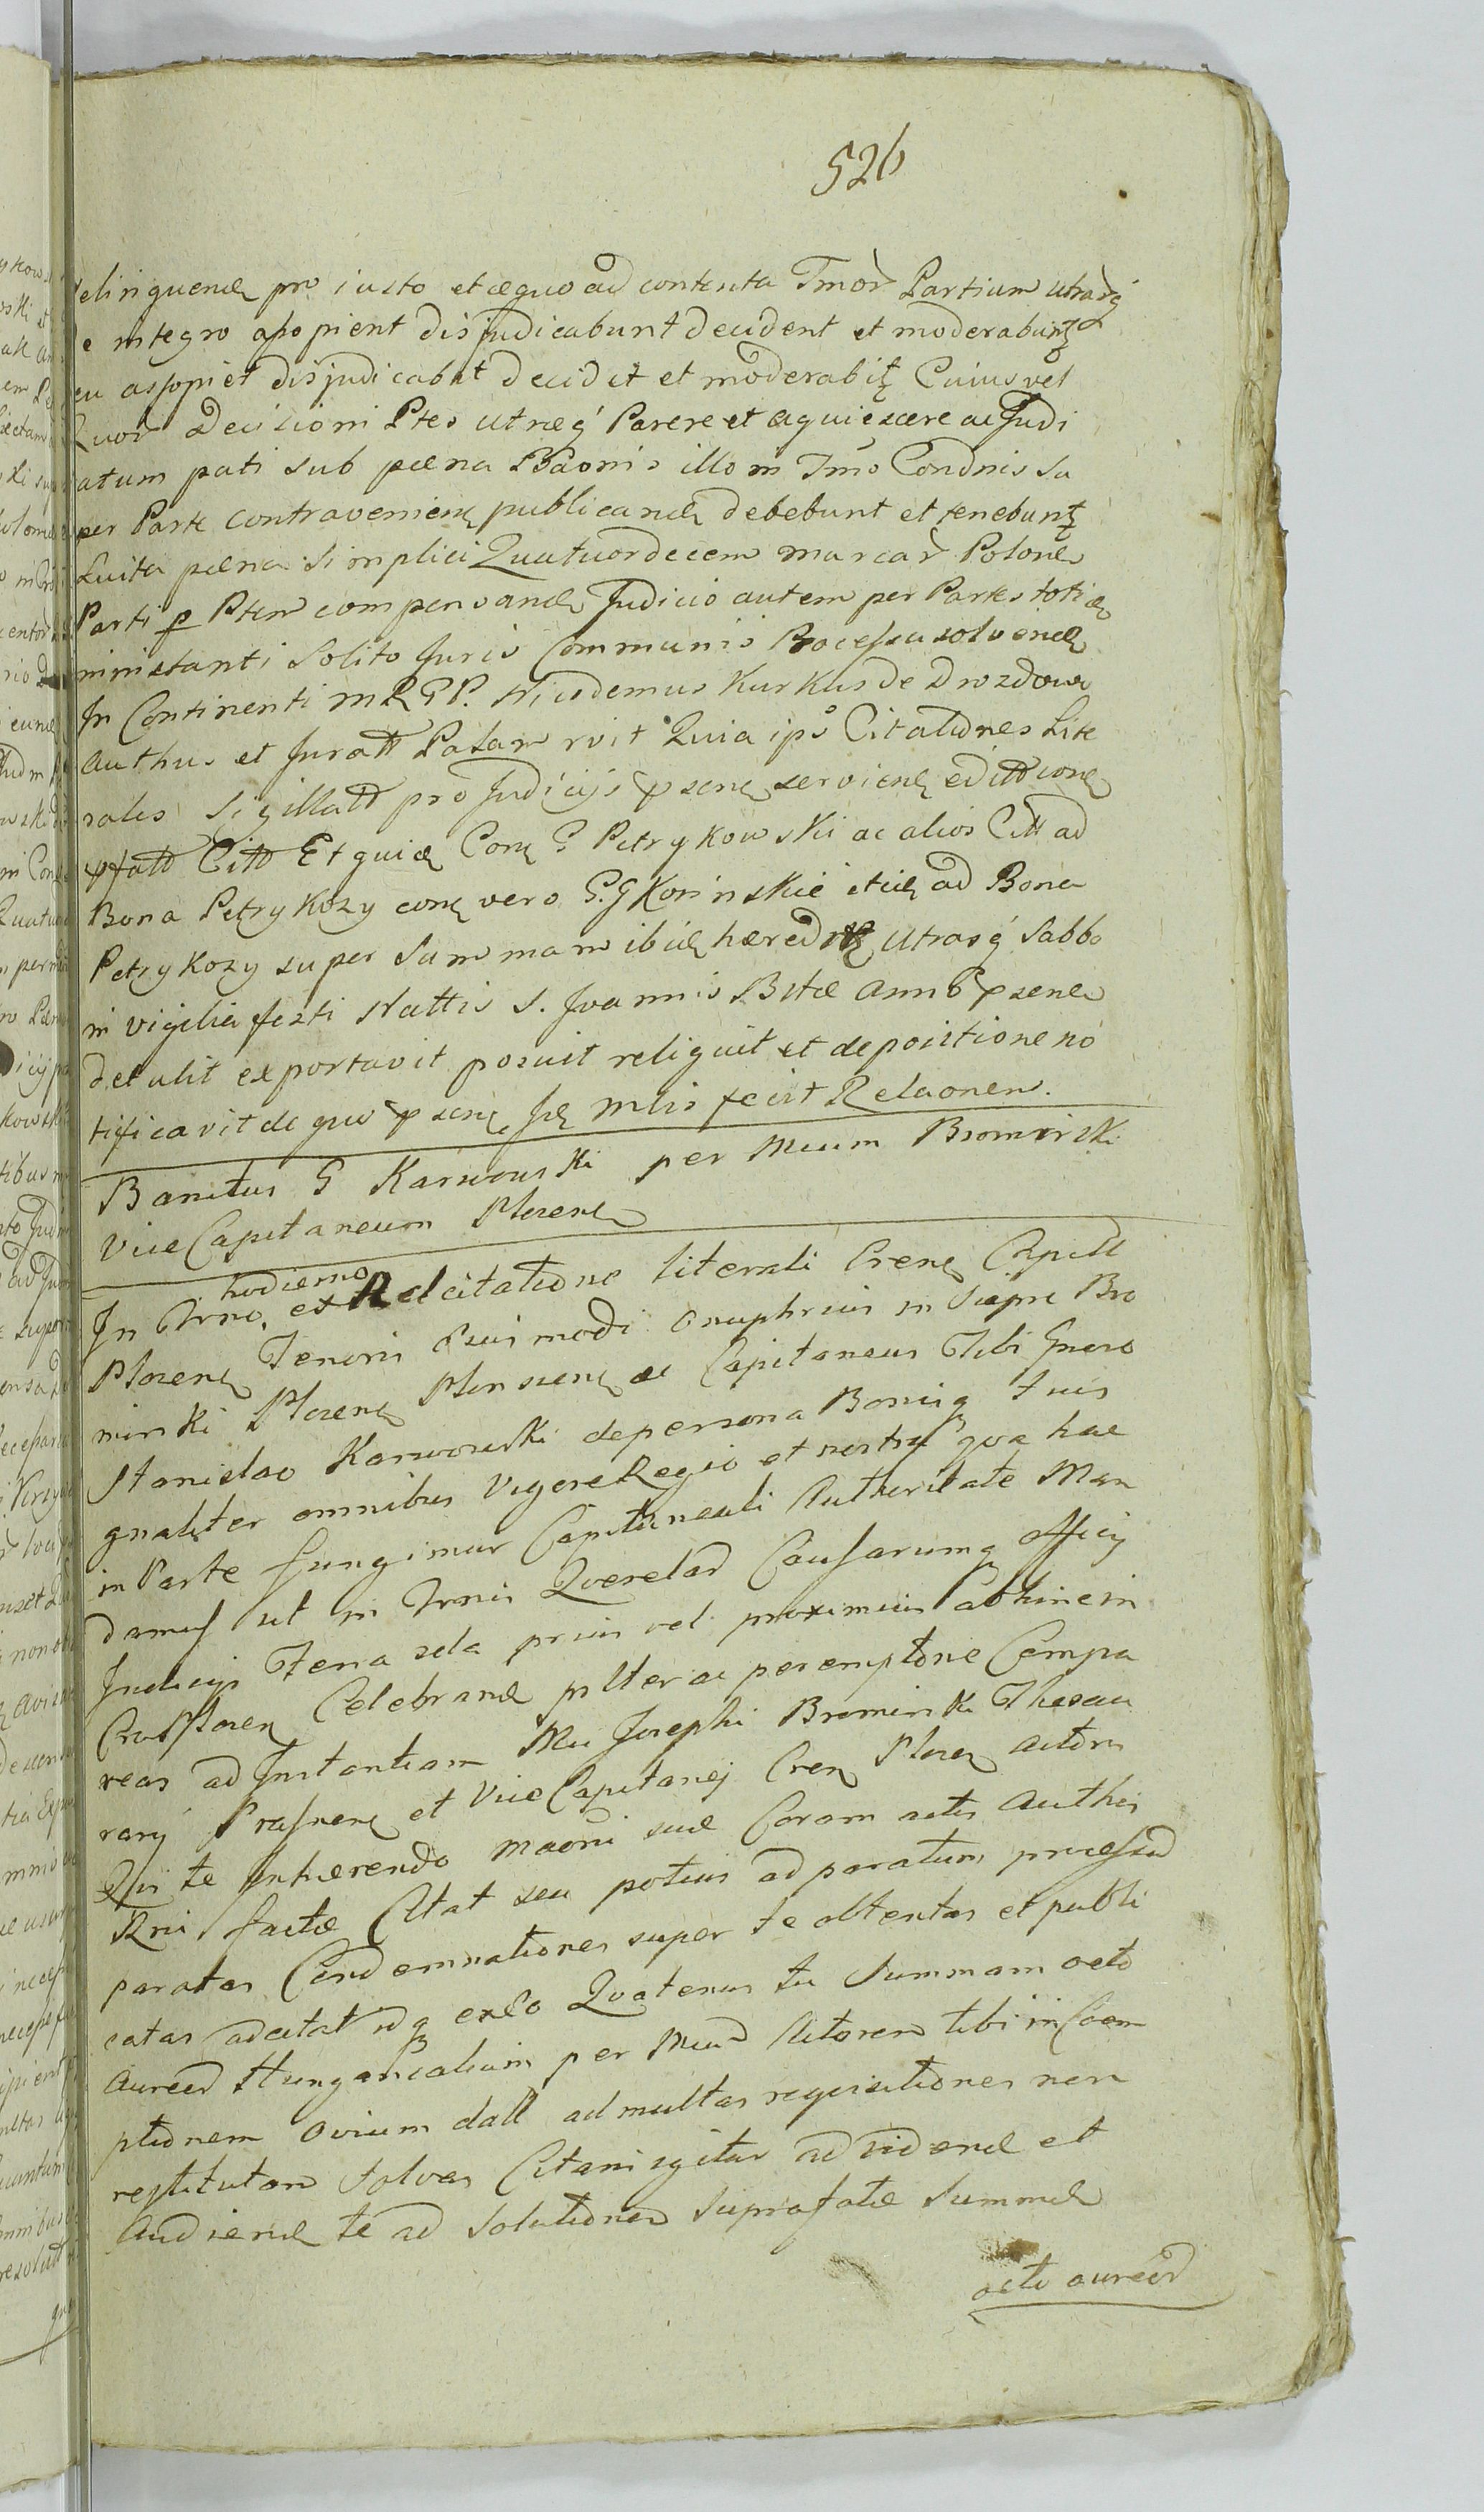 526
pro iusto et æquo ad contenta Tmor Partium utrarq́
integro disjudicabunt decident et moderabunt
assopiet disjudicabit decidet et moderabit Cuius vel
Decisioni Ptes utræq́ Parere et aquiescere ac Judi
catum pati sub pæna Baonis illo in Tmo Condnis su
per Parte contravenien publicand debebunt et tenebunt
Luita pæna simplici Quatuordecem marcar Polon
Parti p Ptem compensand Judicio autem per Partes toties
ministanti Solito Juris Communis Processu solvend
In Continenti MRGP. Nicodemus Kurkus de Drozdowo
Authus et Juratt Palam rvit Quia ips Citationes Lite
rales Sigillatt pro Judicijs psen servien editt con
pfatt Citt Et quid Con G Petrykowski ac alios Citt ad
Bona Petrykozy con vero G.G Kosinskie etiam ad Bona
Petrykozy super Summam ibid hæred utrasq́ Sabbo
in vigilia festi Nattis S. Joannis Btæ Anno psen
detulit exportavit posuit reliquit et depositione no
tificavit de quo psen Jud mlis fecit Relaonem.
Banitus G Karwowski per Mcum Bromirski
Vice Capitaneum Plocen
In Trno, hodierno ex Rel citatione literali Cren Capitt
Plocen Tenoris Eius modi Onuphrius in Siepre Bro
mirski Plocen Plonscen ac Capitaneus Tibi Gneroso
Stanislao Karwowski de persona Bonisq tuis
gnaliter omnibus Vigore Regio et nostra qva hac
in Parte fungimur Capitaneali Authoritate Man
damus ut in Trnis Querelar Causarumq officij
Judicijs Feria 2da pnis vel proximius abhinc in
Cro Plocen Celebrand pltter ac peremptorie Compa
reas ad Instantiam Mci Josephi Bromirski Thesau
rarij Prasnen et Vice Capitanei Cren Plocen Actoris
Qui te Inhærendo maoni suæ Coram actis Authis
Rni factæ Citat seu potius ad paratum processum
paratas Condemnationes super te obtentas et publi
catas adcitat idq ex Eo Quatenus tu Summam octo
Aureor Hungaricalium per Mcum Actorem tibi in Coem
ptionem ovium datt ad multas requisitiones non
restitutam Solvas Citaris igitur ad vidend et
Audiend te ad Solutionem Suprafatæ Summæ
octo aureor